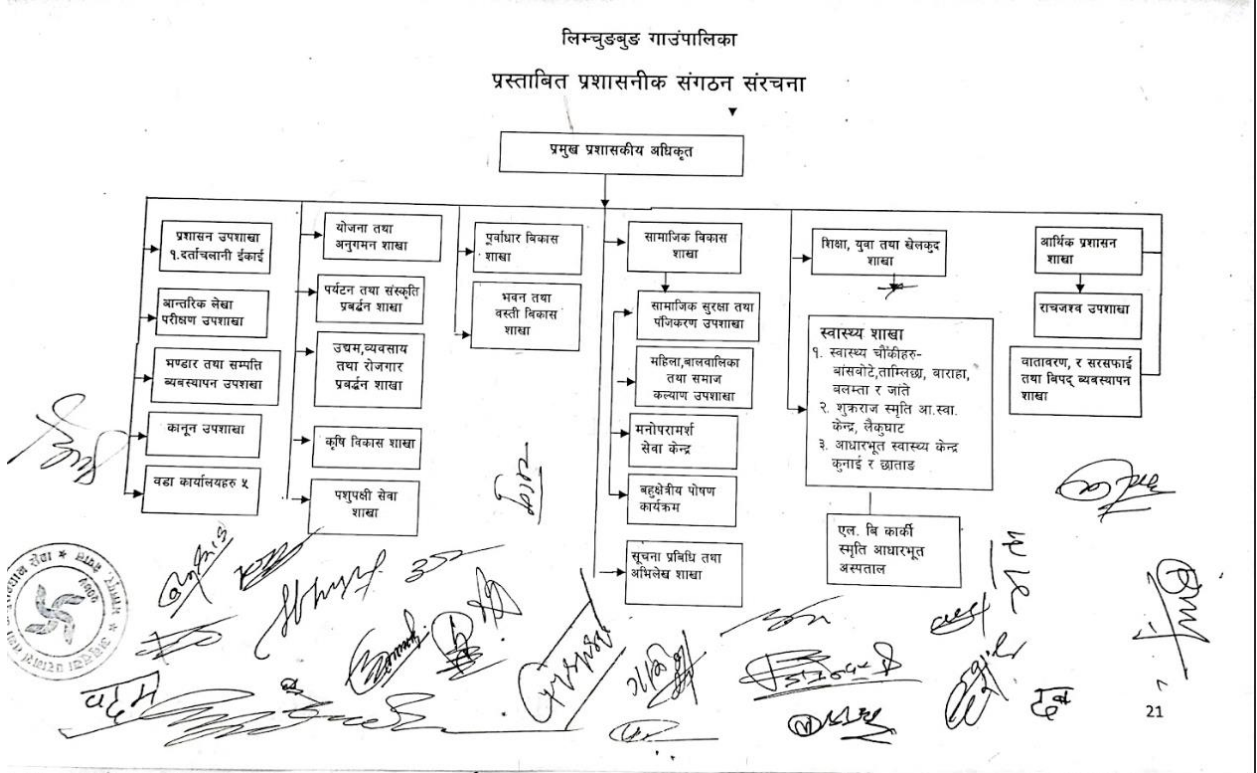 लिम्चुङबुङ गाउंपालिका
प्रस्ताबित प्रशासनीक संगठन संरचना
प्रमुख प्रशासकीय अधिकृत
प्रशासन उपशाखा
१.दर्ताचलानी ईकाई
आन्तरिक लेखा
परीक्षण उपशाखा
भण्डार तथा सम्पत्ति
ब्यबस्यापन उपशखा
कानून उपशाखा
वडा कार्यालयहरु ५
योजना तथा
अनुगमन शाखा
पर्यटन तथा संस्कृति
प्रबर्द्धन शाखा
उद्यम,व्यवसाय
तथा रोजगार
प्रबर्द्धन शाखा
कृषि विकास शाखा
पशुपक्षी सेवा
शाखा
पूर्वाधार बिकास
शाखा
भवन तथा
वस्ती विकास
शाखा
सामाजिक बिकास
शाखा
सामाजिक सुरक्षा तथा
पंजिकरण उपशाखा
महिला,बालवालिका
तथा समाज
कल्याण उपशाखा
मनोपरामर्श
सेवा केन्द्र
बहुक्षेत्रीय पोषण
कार्यक्रम
सूचना प्रबिधि तथा
अभिलेख शाखा
शिक्षा, युवा तथा खेलकुद
शाखा
स्वास्थ्य शाखा
१. स्वास्थ्य चौंकीहरु-
बांसबोटे,ताम्लिछा, बाराहा,
बलम्ता र जांते
२. शुक्रराज स्मृति आ.स्वा.
केन्द्र, लैकुघाट
३. आधारभूत स्वास्थ्य केन्द्र
कुनाई र छाताङ
एल. बि कार्की
स्मृति आधारभूत
अस्पताल
आर्थिक प्रशासन
शाखा
राचजश्व उपशाखा
वातावरण, र सरसफाई
तथा बिपद् ब्यबस्यापन
शाखा
21